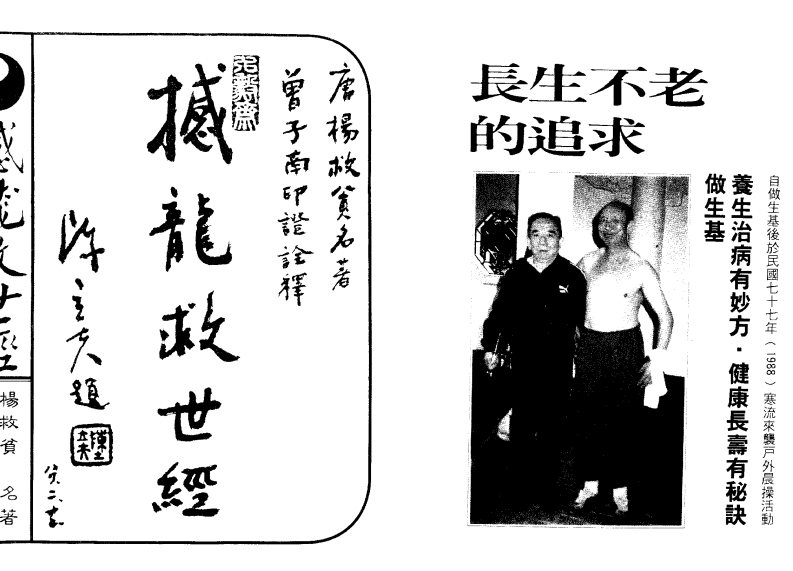 長生不老
的追求
自做生基後於民國七十七年(1988)寒流來襲戶外晨操活動
養生治病有妙方．健康長壽有秘訣
做生基
唐楊救貧名著
曾子南印證詮釋
撼龍救世經
陳立夫題
楊救貧 名著